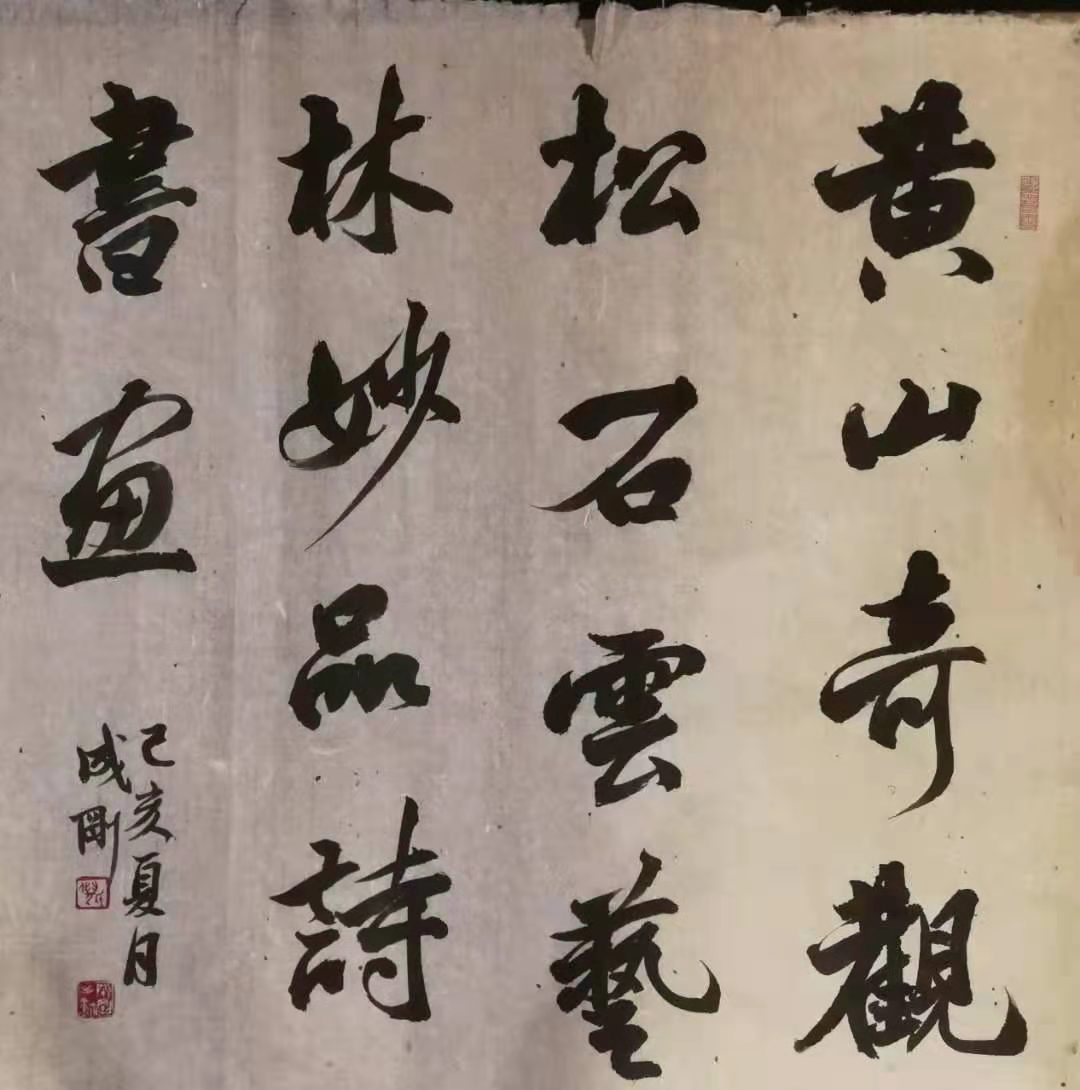 黄山奇觀
松石雲藝
林妙品詩
書畫
己亥夏月
成剛